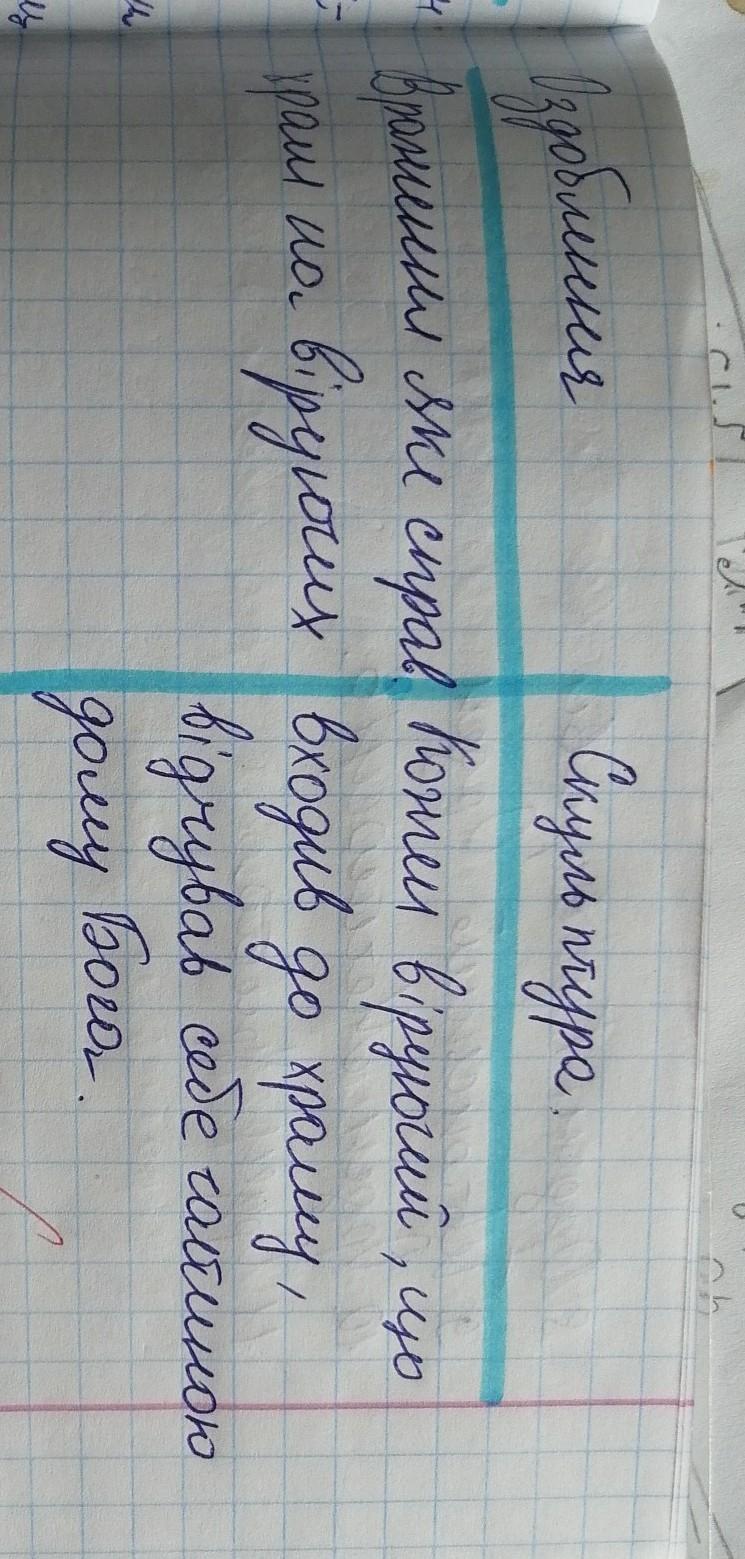 Оздоблення
Скульптура.
Враження яке справ.
храм на віруючих
Кожен віруючий, що
входив до храму,
відчував себе частиною
дому Бога.